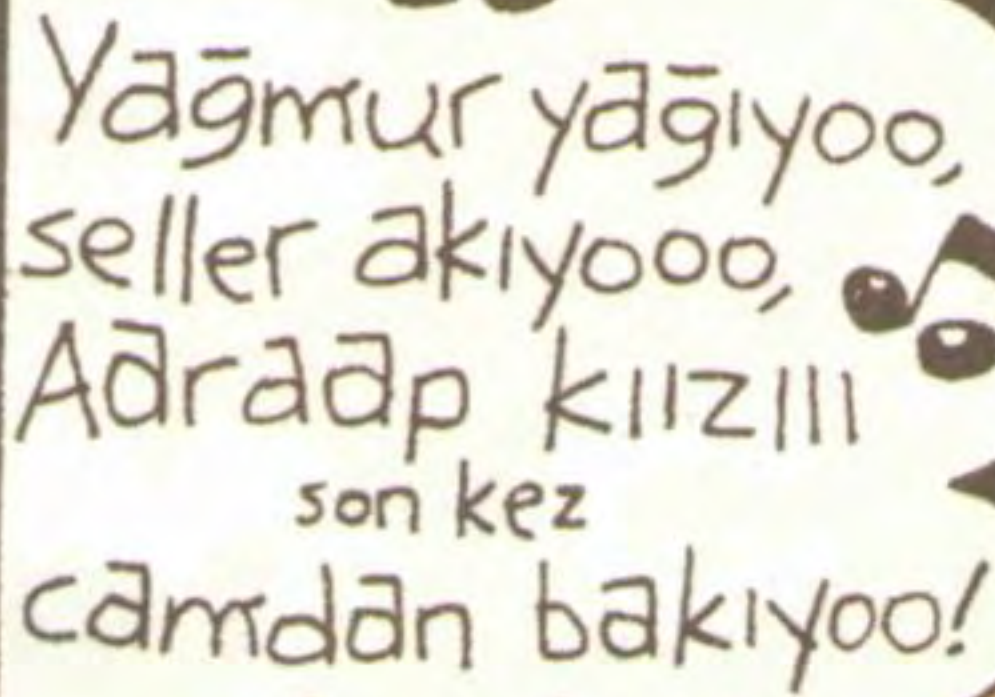 Yağmur yağıyoo,
seller akıyooo,
Aaraap kıızııı
son kez
camdan bakıyoo!